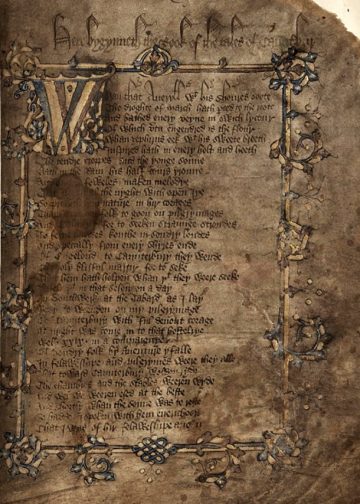 Here bygynneth the Book of the tales of Caunterbury
Whan that Aueryll wt his shoures soote
The droghte of March hath perced to the roote
And bathed euery veyne in swich lycour
Of which vertu engendred is the flour
Whan zephirus eek wt his sweete breeth
Inspired hath in euery holt and heeth
The tendre croppes and the yonge sonne
Hath in the Ram his half cours yronne
foweles maken melodye
the nyght with open Iye
nature in hir corages
folk to goon on pilgrymages
for to seeken straunge strondes
To ferne halwes kouthe in sondry londes
And specially from euery shyres ende
Of Engelond to Caunterbury they wende
The holy blisful martir for to seke
That hem hath holpen whan þt they weere seeke
in that seson on a day
In Southwerk at the Tabard as I lay
Redy to weenden on my pilgrymage
To Caunterbury with ful deuout corage
At nyght was come in to that hostelrye
Wel xxix in a compaignye
Of sondry folk by auenture yfalle
In felaweshipe and pilgrymes weere they alle
That toward Caunterbury wolden ryde
The chambres and the stables weeren wyde
And wel we weeren esed at the beste
And shortly whan the sonne was to reste
So hadde I spoken with hem euerychon
That I was of hir felaweshipe